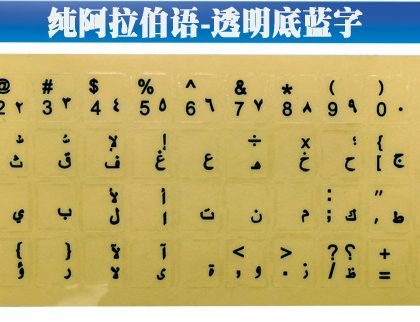 纯阿拉伯语-透明底蓝字
@ # $ % ^ & * ( )
2 ٢ 3 ٣ 4 ٤ 5 ٥ 6 ٦ 7 ٧ 8 ٨ 9 ٩ 0 ٠
ً ٌ لإ إ ÷ x ؛ {
ث ق ف غ ع ه خ ح [ ج
لأ أ : "
ي ب ل ا ت ن م ; ك ' ط
{ } لآ آ < > ? ؟ +
ء ؤ ر لا ى ة , و . ز / ظ =